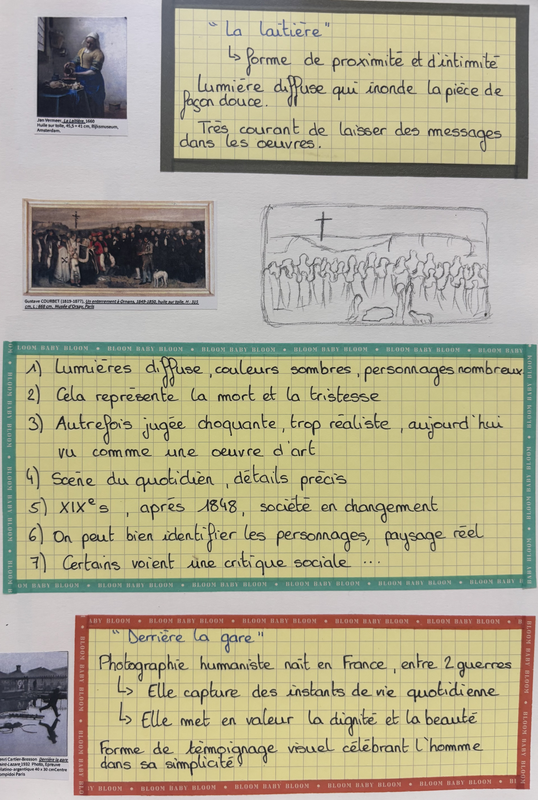 "La laitière"
↳ forme de proximité et d'intimité
Lumière diffuse qui inonde la pièce de
façon douce.
Très courant de laisser des messages
dans les oeuvres.
Jan Vermeer, La Laitière, 1660
Huile sur toile, 45,5 × 41 cm, Rijksmuseum,
Amsterdam.
Gustave COURBET (1819-1877), Un enterrement à Ornans, 1849-1850, huile sur toile, H : 315
cm, L : 668 cm, Musée d'Orsay, Paris
BLOOM BABY BLOOM ★ BLOOM BABY BLOOM ★ BLOOM BABY BLOOM
1) Lumières diffuse, couleurs sombres, personnages nombreux
2) Cela représente la mort et la tristesse
3) Autrefois jugée choquante, trop réaliste, aujourd'hui
vu comme une oeuvre d'art
4) Scène du quotidien, détails précis
5) XIXe s, après 1848, société en changement
6) On peut bien identifier les personnages, paysage réel
7) Certains voient une critique sociale ...
BLOOM BABY BLOOM ★ BLOOM BABY BLOOM ★ BLOOM BABY BLOOM
BABY BLOOM ★ BLOOM BABY BLOOM ★ BLOOM BABY BLOOM
"Derrière la gare"
Photographie humaniste naît en France, entre 2 guerres
↳ Elle capture des instants de vie quotidienne
↳ Elle met en valeur la dignité et la beauté
Forme de témoignage visuel célébrant l'homme
dans sa simplicité
BLOOM BABY BLOOM ★ BLOOM BABY BLOOM ★ BLOOM BABY BLOOM
Cartier-Bresson Derrière la gare
1932 Photo, Epreuve
argentique 40 x 30 cm Centre
Paris